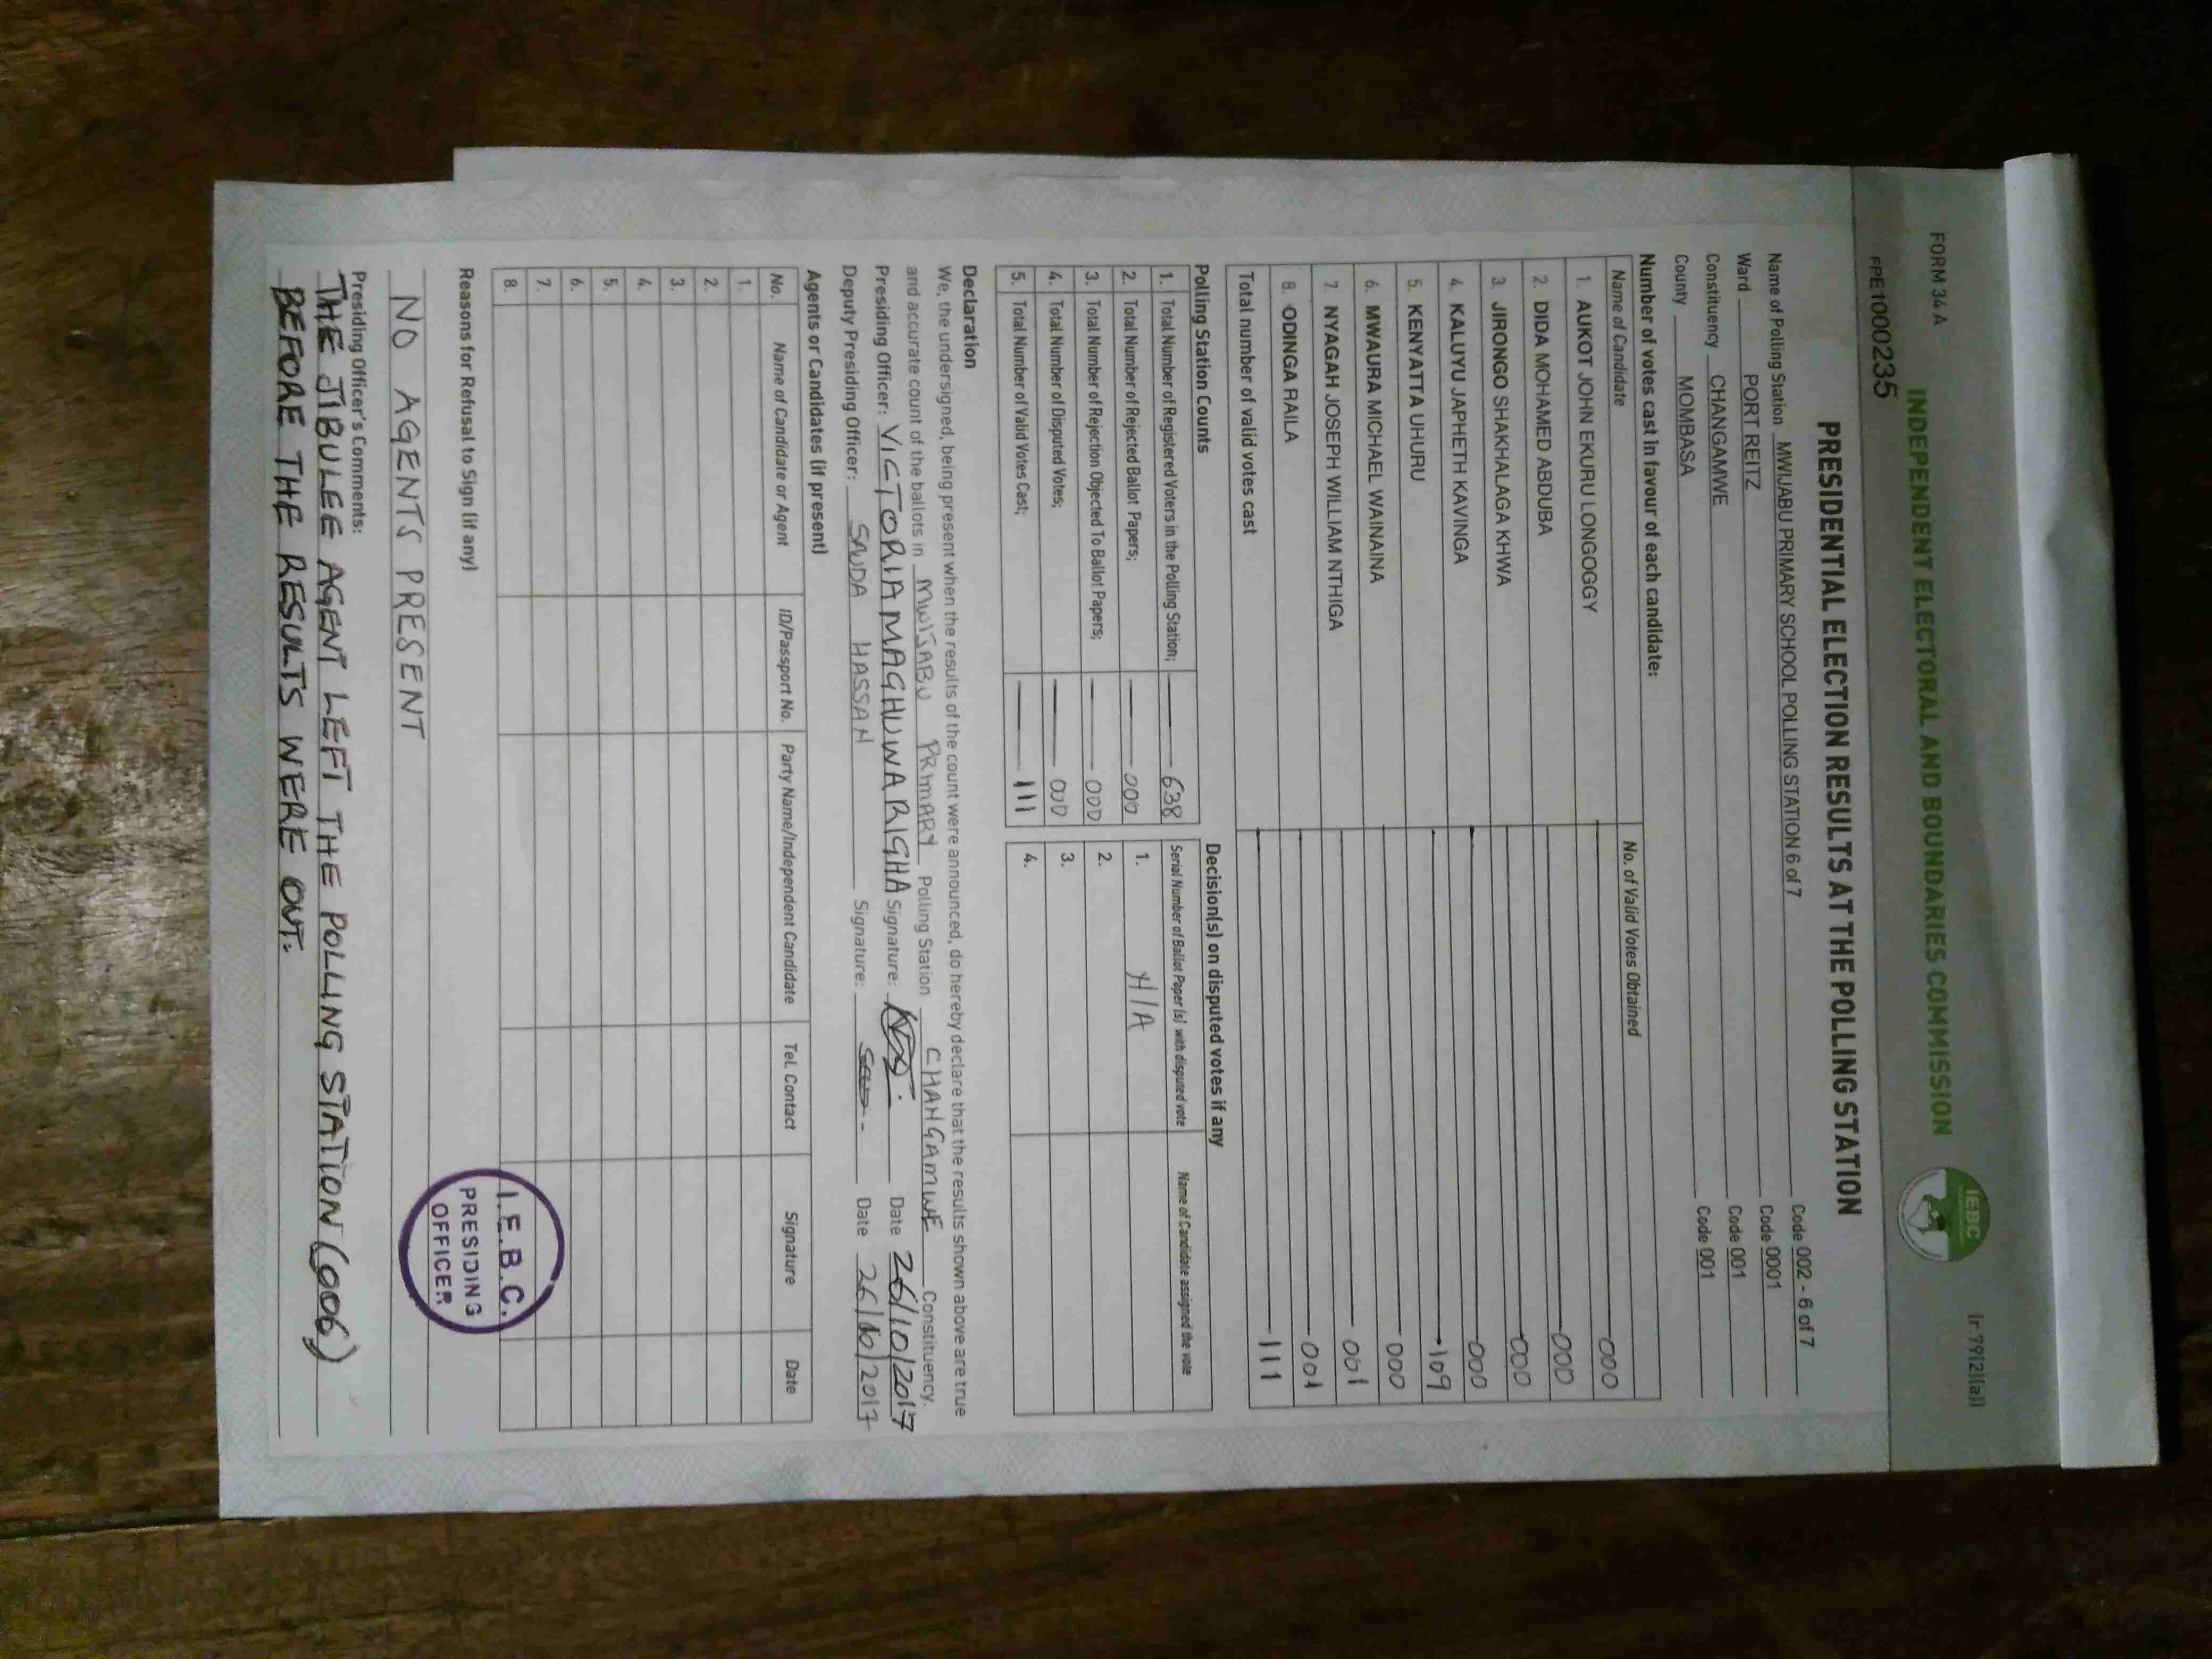 FORM 34 A
(r 79(2)(a))
INDEPENDENT ELECTORAL AND BOUNDARIES COMMISSION
IEBC
FPE1000235
PRESIDENTIAL ELECTION RESULTS AT THE POLLING STATION
Name of Polling Station MWIJABU PRIMARY SCHOOL POLLING STATION 6 of 7 Code 002 - 6 of 7
Ward PORT REITZ Code 0001
Constituency CHANGAMWE Code 001
County MOMBASA Code 001
Number of votes cast in favour of each candidate:
Name of Candidate No. of Valid Votes Obtained
1. AUKOT JOHN EKURU LONGOGGY 000
2. DIDA MOHAMED ABDUBA 000
3. JIRONGO SHAKHALAGA KHWA 000
4. KALUYU JAPHETH KAVINGA 000
5. KENYATTA UHURU 109
6. MWAURA MICHAEL WAINAINA 000
7. NYAGAH JOSEPH WILLIAM NTHIGA 001
8. ODINGA RAILA 001
Total number of valid votes cast 111
Polling Station Counts
1. Total Number of Registered Voters in the Polling Station; 638
2. Total Number of Rejected Ballot Papers; 000
3. Total Number of Rejection Objected To Ballot Papers; 000
4. Total Number of Disputed Votes; 000
5. Total Number of Valid Votes Cast; 111
Decision(s) on disputed votes if any
Serial Number of Ballot Paper (s) with disputed vote Name of Candidate assigned the vote
1. N/A
2.
3.
4.
Declaration
We, the undersigned, being present when the results of the count were announced, do hereby declare that the results shown above are true
and accurate count of the ballots in MWIJABU PRIMARY Polling Station CHANGAMWE Constituency.
Presiding Officer: VICTORIA MAGHUWA RIGHA Signature: Date 26/10/2017
Deputy Presiding Officer: SAUDA HASSAN Signature: Date 26/10/2017
Agents or Candidates (if present)
No. Name of Candidate or Agent ID/Passport No. Party Name/Independent Candidate Tel. Contact Signature Date
1.
2.
3.
4.
5.
6.
7.
8.
Reasons for Refusal to Sign (if any)
NO AGENTS PRESENT
I.E.B.C.
PRESIDING
OFFICER
Presiding Officer's Comments:
THE JIBULEE AGENT LEFT THE POLLING STATION (006)
BEFORE THE RESULTS WERE OUT.